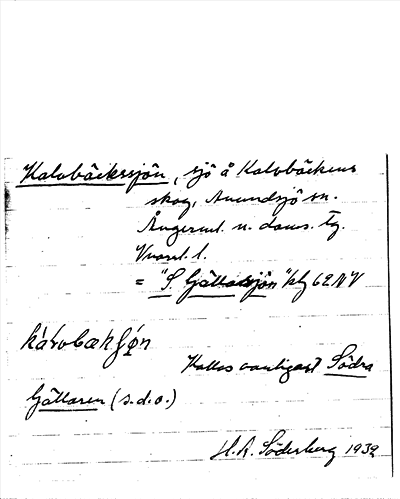 Kalvbäckssjön, sjö å Kalvbäckens
skog, Anundsjö sn.
Ångerml. n. doms. tg.
Vnorrl. l.
= "S. Gällarsjön" kbl 62 NV
Kallas vanligast Södra
Gällaren (s.d.o.)
H. A. Söderberg 1932